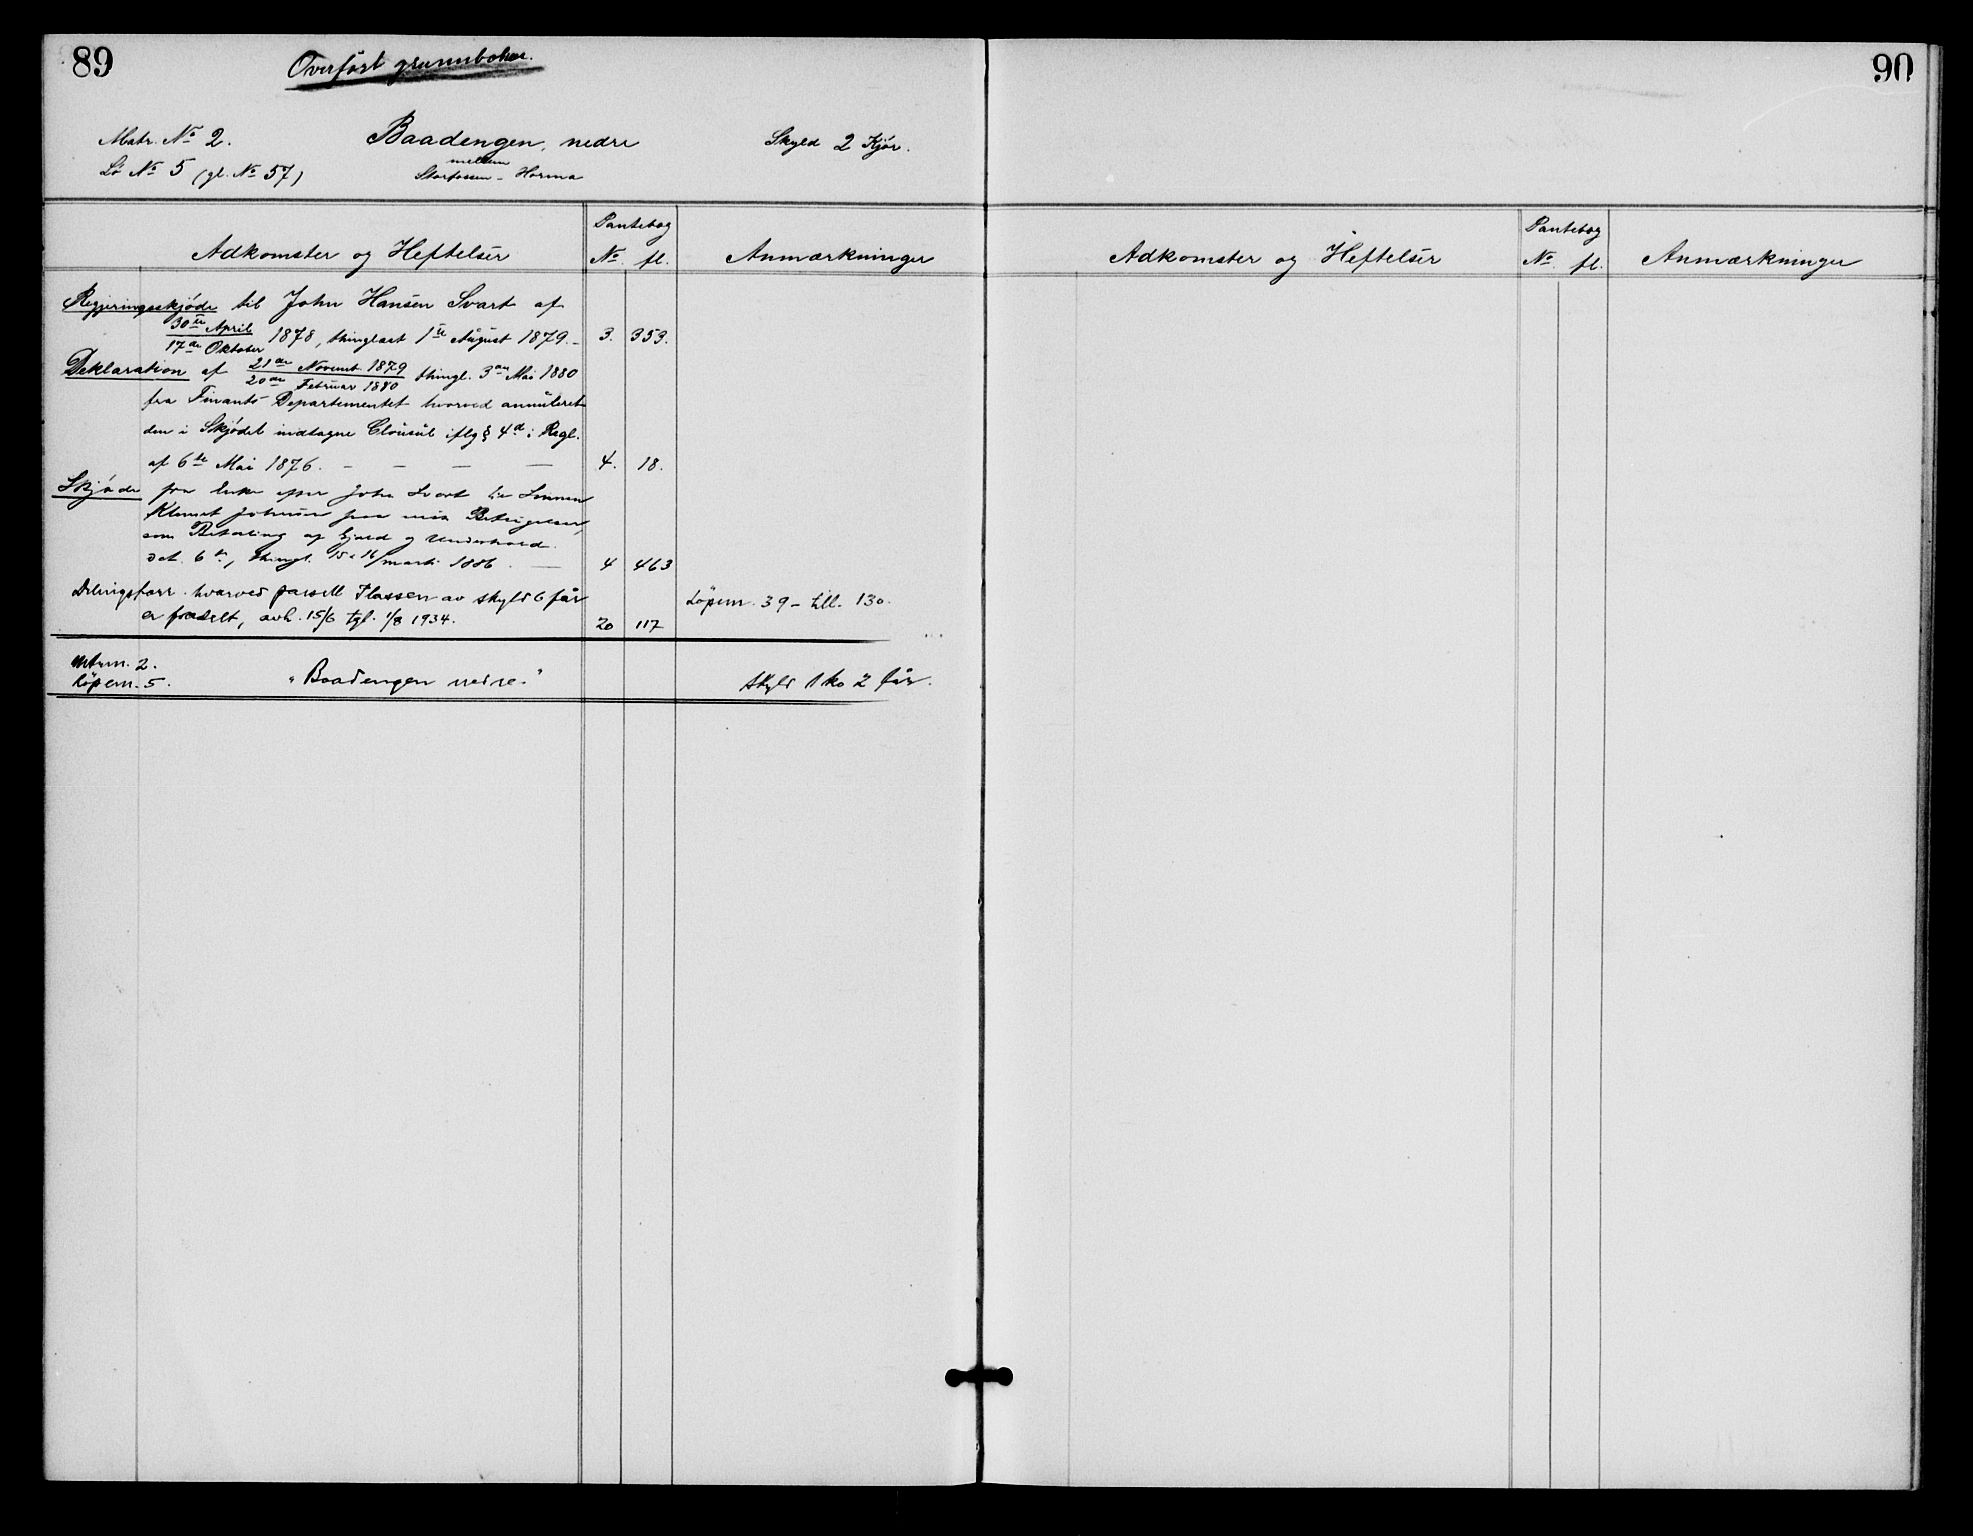 89
Overført grunnboken.
Matr. No 2. Baadengen, nedre Skyld 2 Kjør.
Lø No 5 (gl. No 57) mellem
Storfossen - Horma
Adkomster og Heftelser Pantebog No. fl. Anmærkninger
Regjeringsskjøde til John Hansen Svart af
30te April
17de Oktober 1878, thinglæst 1te August 1879. - 3. 353.
Deklaration af 21de Novemb. 1879
20de Februar 1880 thingl. 3die Mai 1880
fra Finants Departementet hvorved annuleret
den i Skjødet indtagne Clousul iflg § 4d i Regl.
af 6te Mai 1876. - - - - 4. 18.
Skjøde fra Enke efter John Svart til Sønnen
Klemet Johnsen paa visse Betingelser,
som Betaling af Gjæld og Underhold.
Dat. 6te, thingl. 15 & 16/marts 1886. - 4 463
Delingsforr. hvorved parsell Flassen av skyld 6 får
er fradelt, avh. 15/6 tgl. 1/8 1934. 20 117 Løpenr. 39 - till. 130.
Matrnr. 2.
Løpenr. 5. "Baadengen nedre" skyld 1 ko 2 får.
90
Adkomster og Heftelser Pantebog No. fl. Anmærkninger